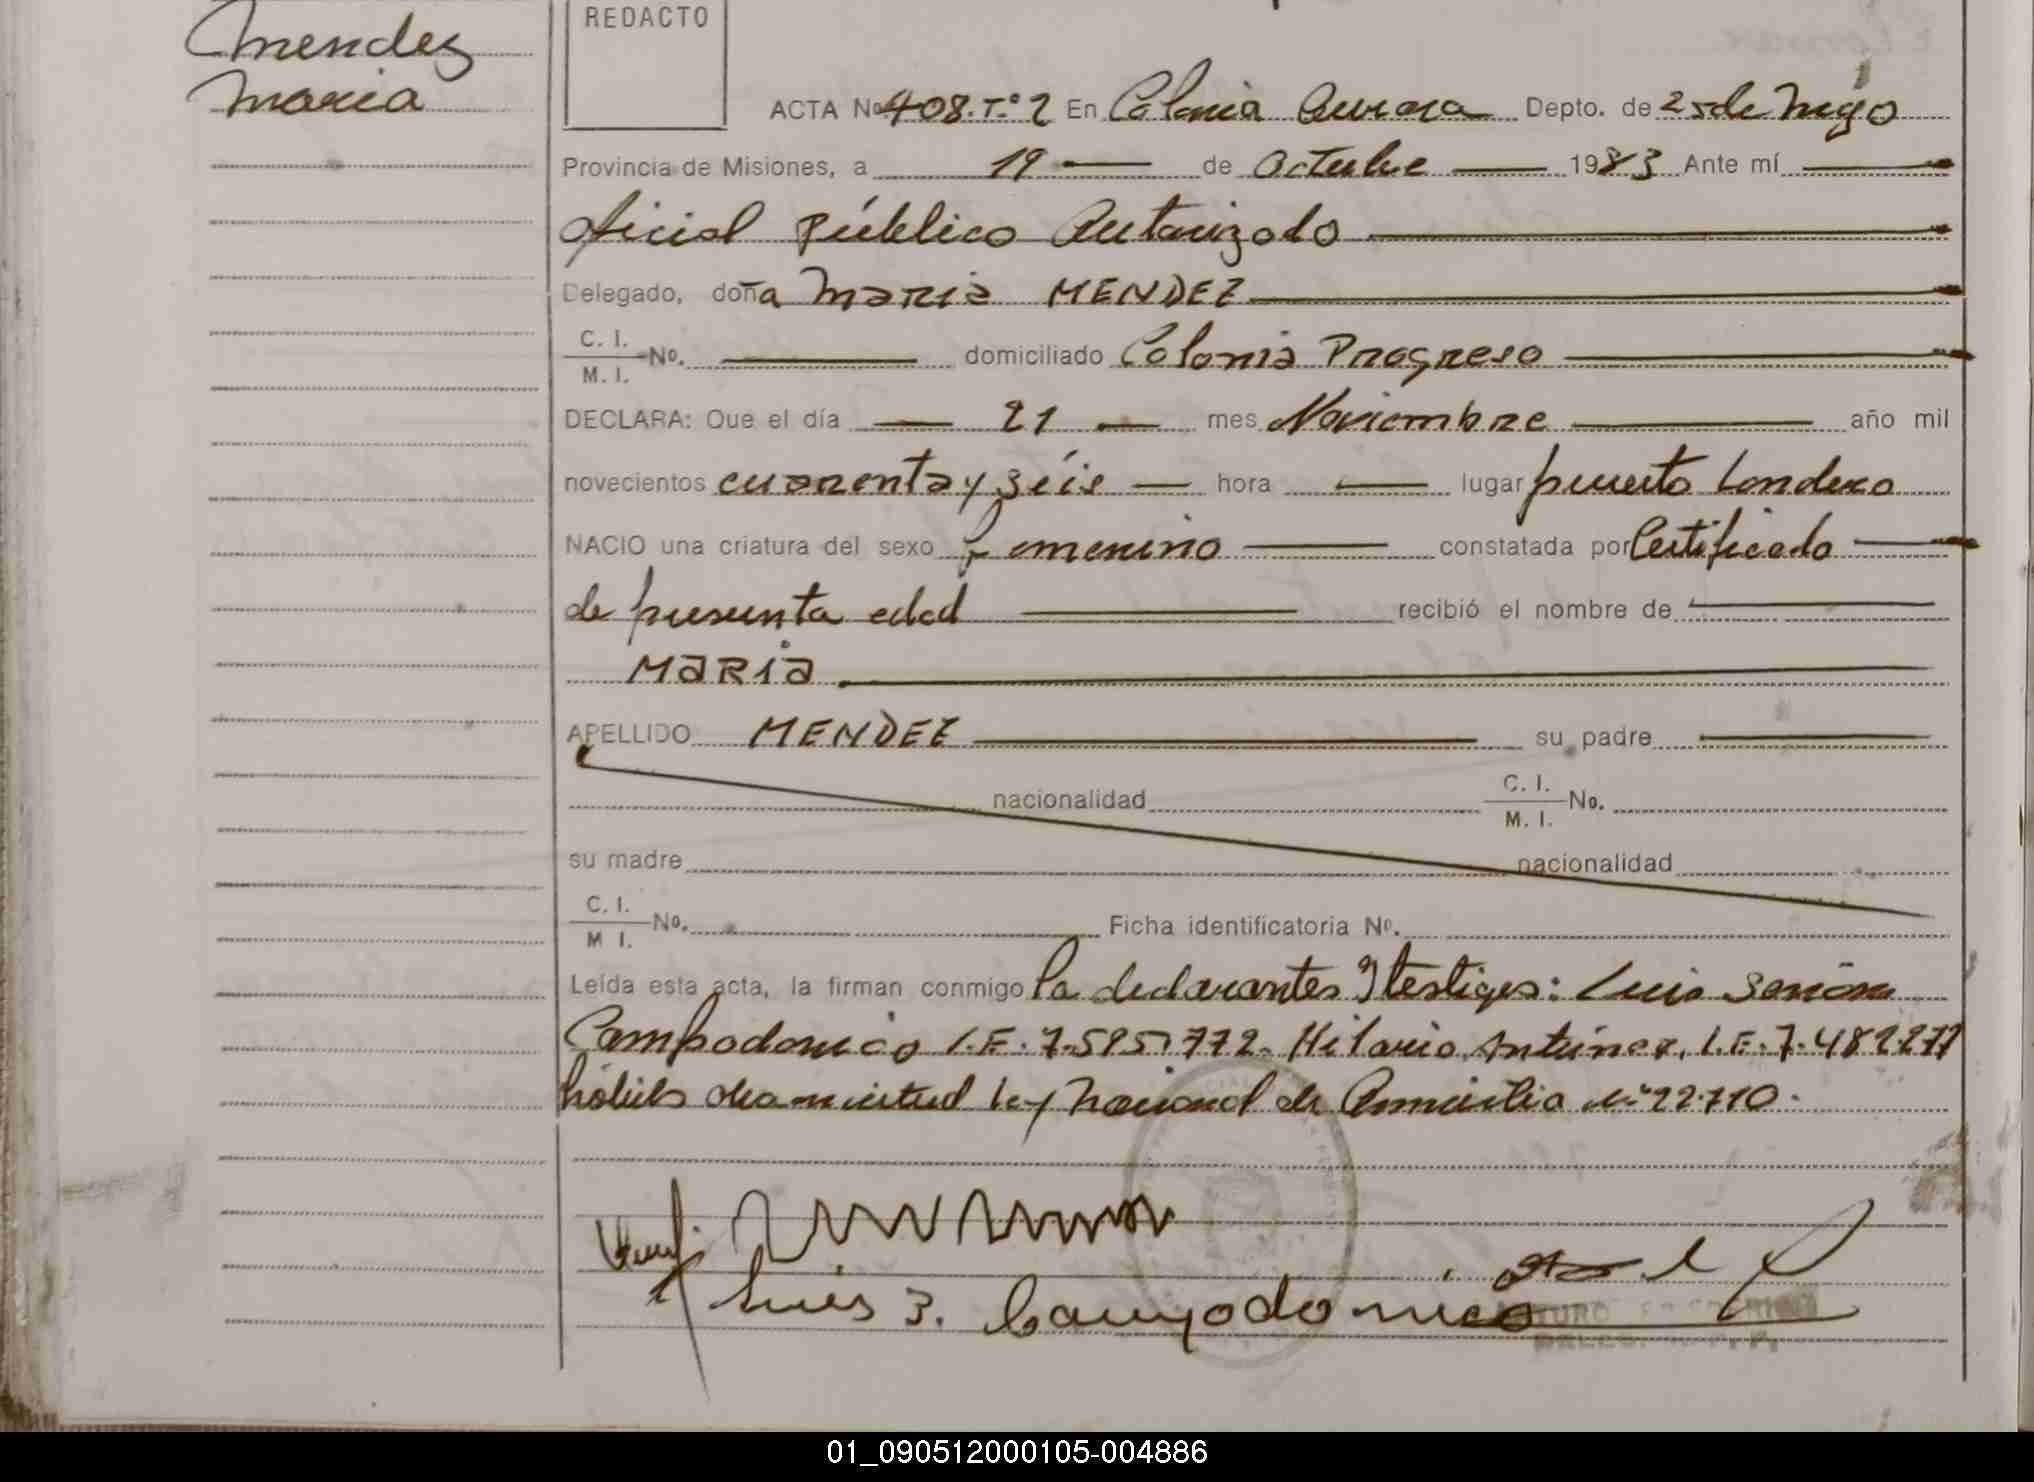 Mendez
Maria
REDACTO
ACTA Nº 408.T.º 2 En Colonia Aurora Depto. de 25 de Mayo
Provincia de Misiones, a 19 de Octubre 1983 Ante mí
Oficial Público Autorizado
Delegado, doña Maria MENDEZ
C. I.
M. I. Nº. domiciliado Colonia Progreso
DECLARA: Que el día 21 mes Noviembre año mil
novecientos cuarenta y séis hora lugar puerto Londero
NACIO una criatura del sexo Femenino constatada por Certificado
de presunta edad recibió el nombre de
MaRia
APELLIDO MENDEZ su padre
nacionalidad C. I.
M. I. No.
su madre nacionalidad
C. I.
M I. Nº. Ficha identificatoria Nº.
Leída esta acta, la firman conmigo la declarantes y testigos: Luis
Campodonico I.E. 7.595.772. Hilario Antúnez, I.E. 7.482.277
hábiles ley Nacional de Amnistia Nº 22.710.
Luis S. Campodonico
01_090512000105-004886